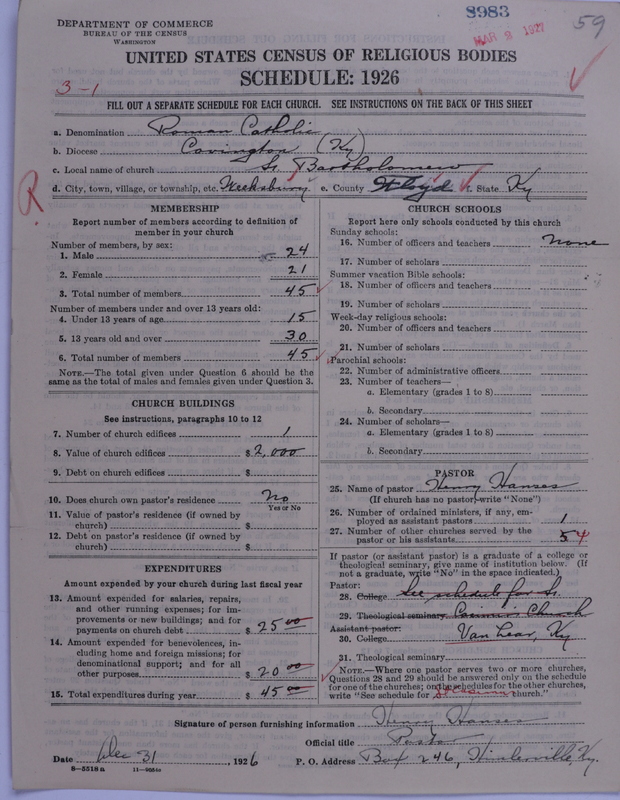 8983
59
MAR 2 1927
DEPARTMENT OF COMMERCE
BUREAU OF THE CENSUS
WASHINGTON
UNITED STATES CENSUS OF RELIGIOUS BODIES
SCHEDULE: 1926
3-1
FILL OUT A SEPARATE SCHEDULE FOR EACH CHURCH. SEE INSTRUCTIONS ON THE BACK OF THIS SHEET
a. Denomination Roman Catholic
b. Diocese Covington (Ky)
c. Local name of church St Bartholomew
d. City, town, village, or township, etc. Weeksbury e. County Floyd f. State Ky
R
MEMBERSHIP
Report number of members according to definition of
member in your church
Number of members, by sex:
1. Male 24
2. Female 21
3. Total number of members 45
Number of members under and over 13 years old:
4. Under 13 years of age 15
5. 13 years old and over 30
6. Total number of members 45
NOTE.—The total given under Question 6 should be
same as the total of males and females given under Question 3.
CHURCH BUILDINGS
See instructions, paragraphs 10 to 12
7. Number of church edifices 1
8. Value of church edifices $ 2,000
9. Debt on church edifices $
10. Does church own pastor's residence No
Yes or No
11. Value of pastor's residence (if owned by
church) $
12. Debt on pastor's residence (if owned by
church) $
EXPENDITURES
Amount expended by your church during last fiscal year
13. Amount expended for salaries, repairs,
and other running expenses; for im-
provements or new buildings; and for
payments on church debt $ 25 00
14. Amount expended for benevolences, in-
cluding home and foreign missions; for
denominational support; and for all
other purposes $ 20 00
15. Total expenditures during year $ 45 00
CHURCH SCHOOLS
Report here only schools conducted by this church
Sunday schools:
16. Number of officers and teachers None
17. Number of scholars
Summer vacation Bible schools:
18. Number of officers and teachers
19. Number of scholars
Week-day religious schools:
20. Number of officers and teachers
21. Number of scholars
Parochial schools:
22. Number of administrative officers
23. Number of teachers—
a. Elementary (grades 1 to 8)
b. Secondary
24. Number of scholars—
a. Elementary (grades 1 to 8)
b. Secondary
PASTOR
25. Name of pastor Henry Hanses
(If church has no pastor, write "None")
26. Number of ordained ministers, if any, em-
ployed as assistant pastors 1
27. Number of other churches served by the
pastor or his assistants 5 4
If pastor (or assistant pastor) is a graduate of a college or
theological seminary, give name of institution below. (If
not a graduate, write "No" in the space indicated.)
Pastor:
28. College See schedule for St.
29. Theological seminary Casimir's Church
Assistant pastor:
30. College Van Lear, Ky
31. Theological seminary
NOTE.—Where one pastor serves two or more churches,
Questions 28 and 29 should be answered only on the schedule
for one of the churches; on the schedules for the other churches,
write "See schedule for church."
Signature of person furnishing information Henry Hanses
Official title Pastor
Date Dec 31, 1926 P. O. Address Box 246, Ky.
8-5518 a